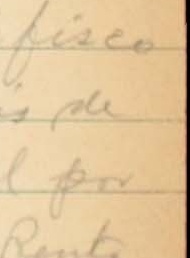 fisco
is de
l por
Renta